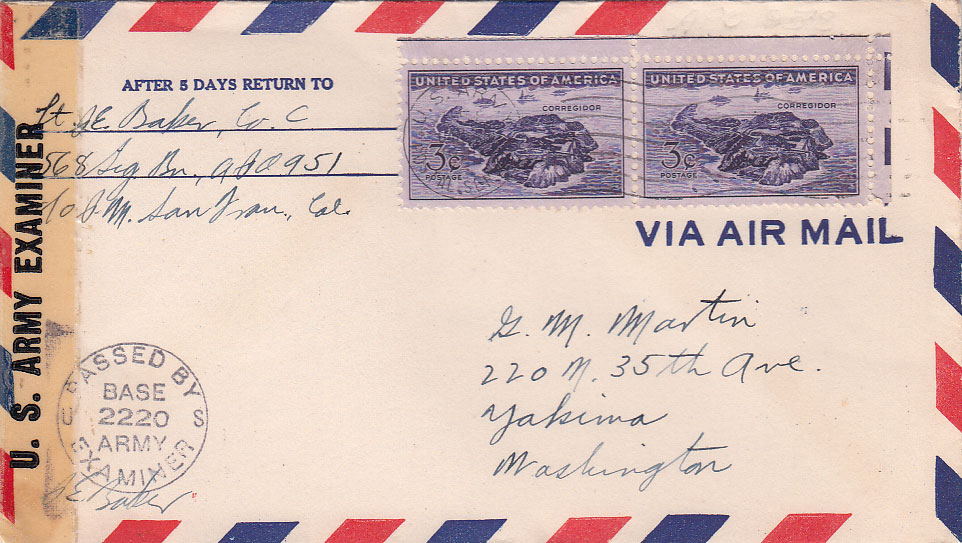 U. S. ARMY EXAMINER
AFTER 5 DAYS RETURN TO
Lt. J.E. Baker, Co. C
568 Sig Bn, APO 951
c/o P.M. San Fran., Cal.
UNITED STATES OF AMERICA
CORREGIDOR
3¢
POSTAGE
UNITED STATES OF AMERICA
CORREGIDOR
3¢
POSTAGE
VIA AIR MAIL
G. M. Martin
220 N. 35th Ave.
Yakima
Washington
PASSED BY
BASE
U 2220 S
ARMY
EXAMINER
JE Baker